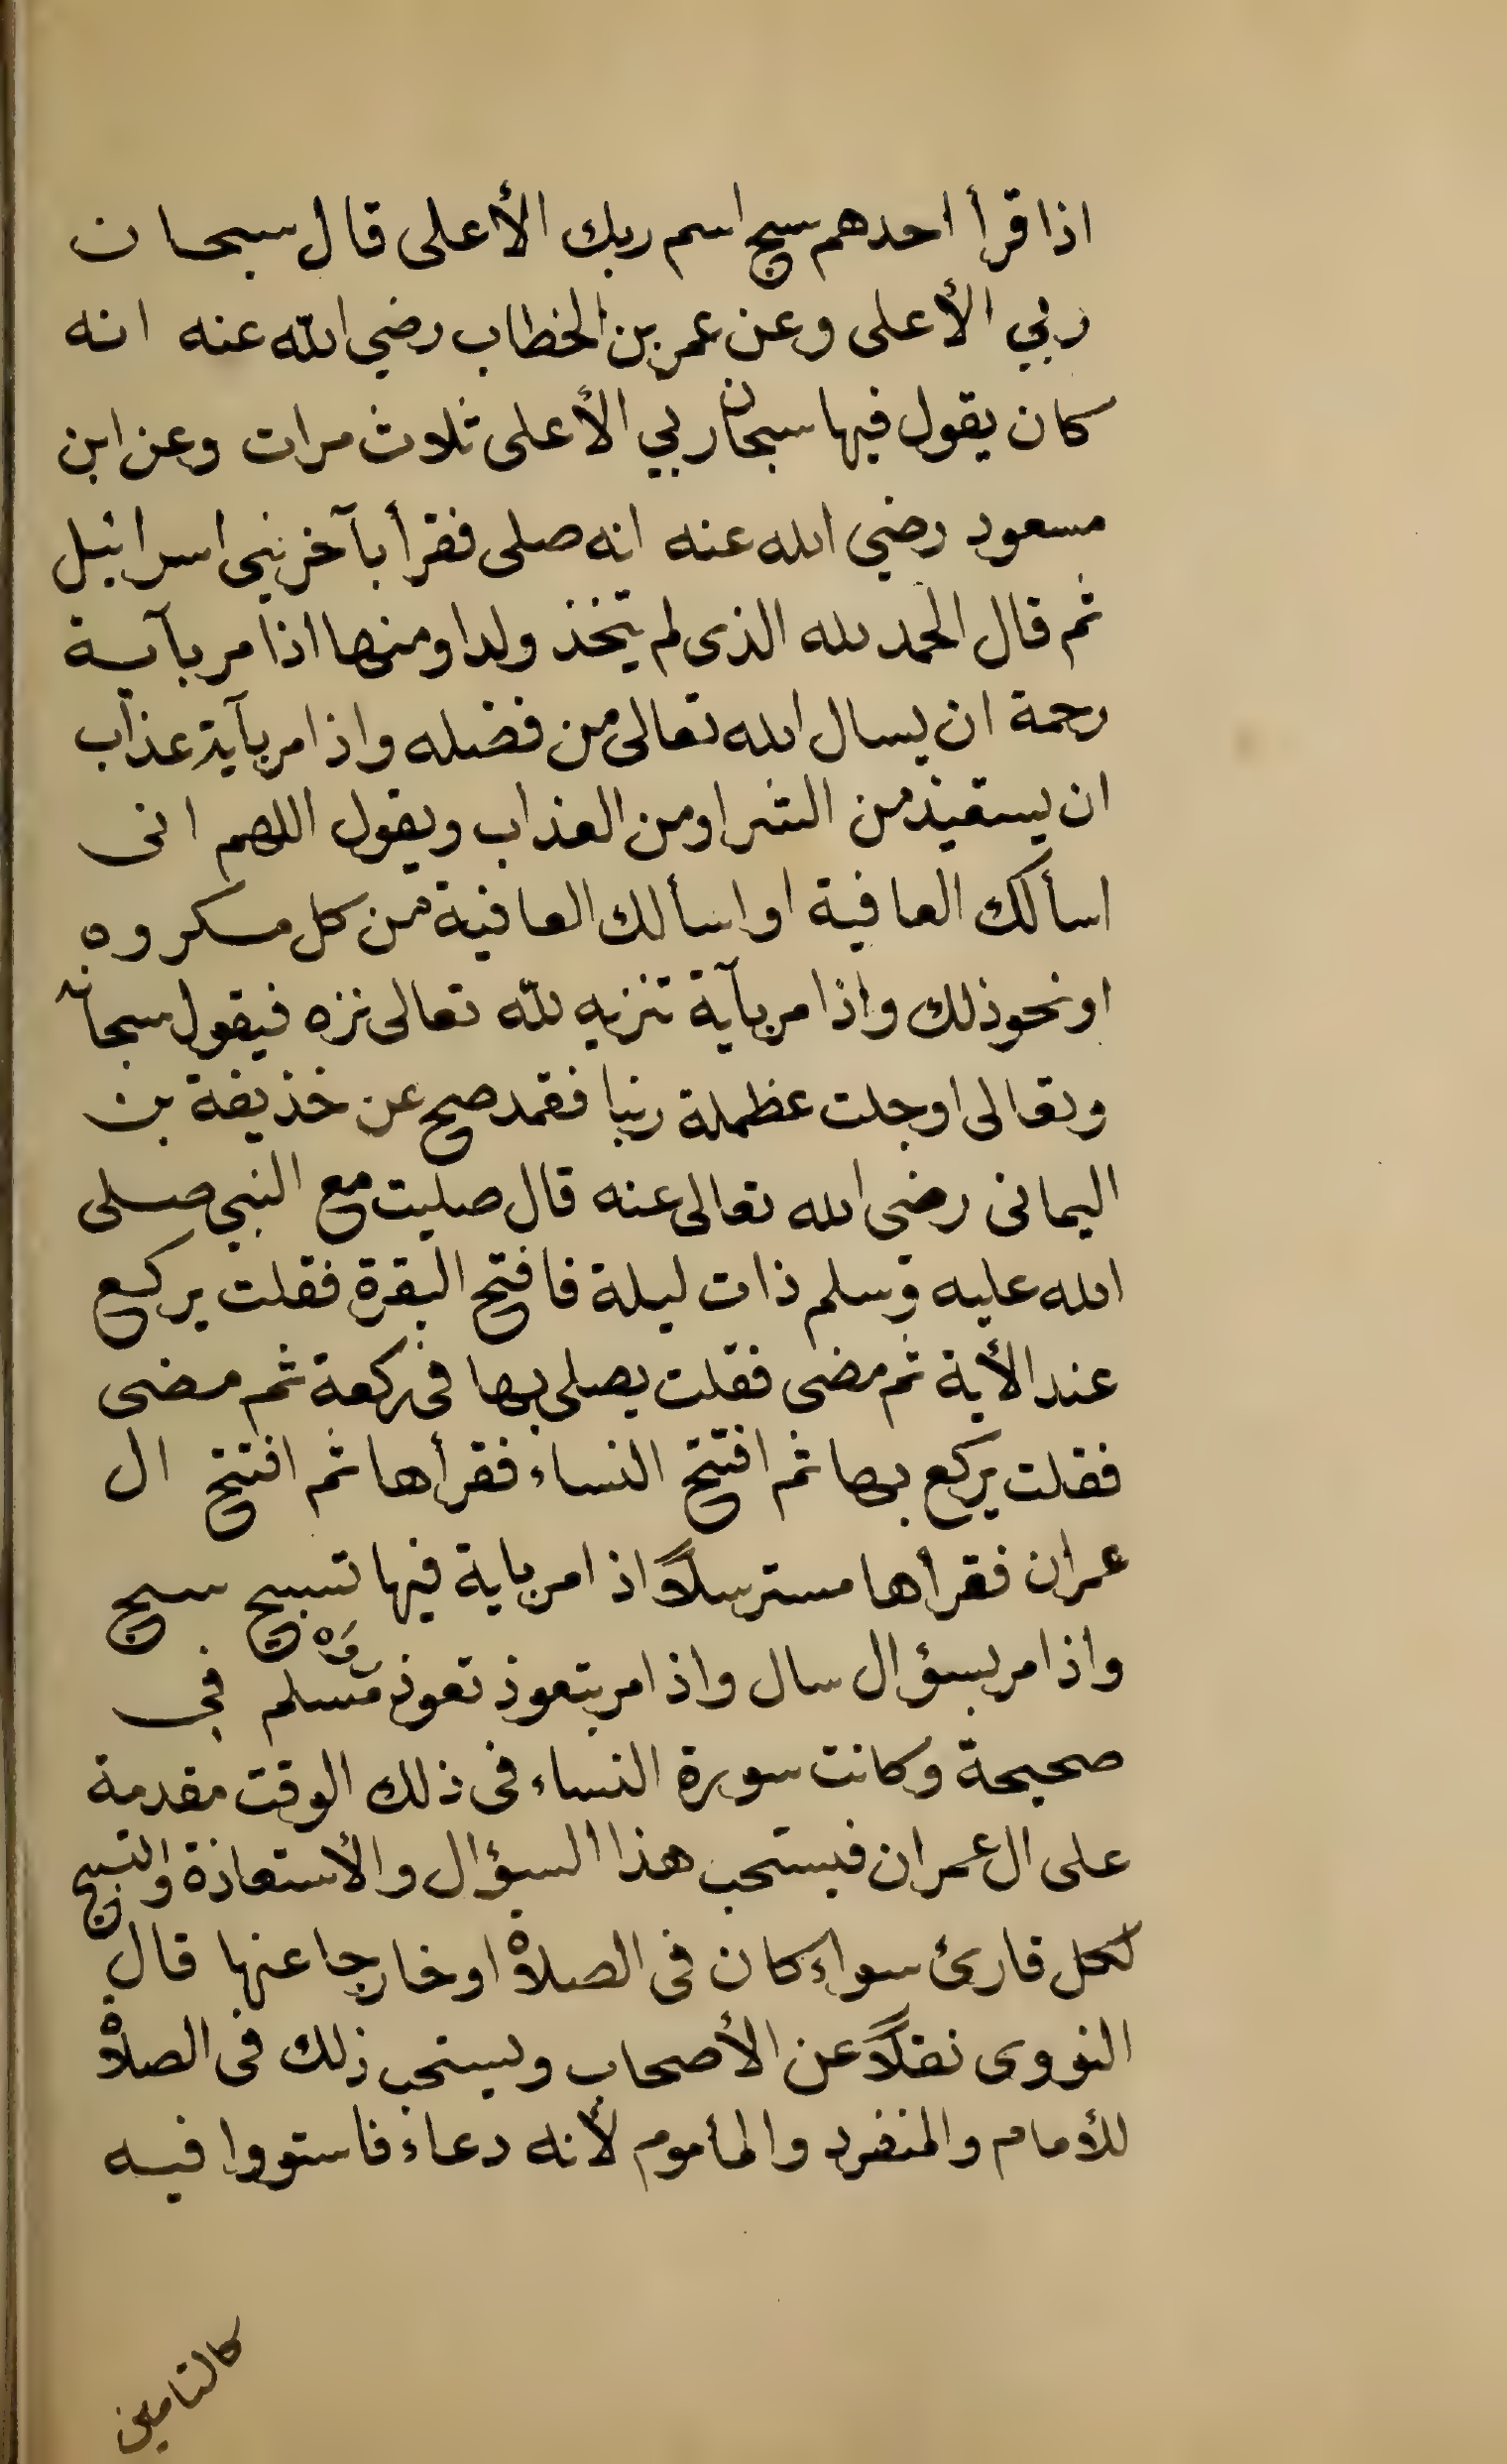 اذا قرأ احدهم سبح اسم ربك الأعلى قال سبحان
ربي الأعلى وعن عمر بن الخطاب رضي الله عنه انه
كان يقول فيها سبحان ربي الأعلى ثلاث مرات وعن ابن
مسعود رضي الله عنه انه صلى فقرأ بآخر بنى اسرائيل
ثم قال الحمد لله الذى لم يتخذ ولدا ومنها اذا مر بآية
رحمة ان يسال الله تعالى من فضله واذا مر بآية عذاب
ان يستعيذ من الشر او من العذاب ويقول اللهم انى
اسألك العافية او اسألك العافية من كل مكروه
او نحو ذلك واذا مر بآية تنزيه لله تعالى نزه فيقول سبحانه
وتعالى او جلت عظمة ربنا فقد صح عن خذيفة بن
اليمانى رضى الله تعالى عنه قال صليت مع النبي صلى
الله عليه وسلم ذات ليلة فافتح البقرة فقلت يركع
عند الأية ثم مضى فقلت يصلى بها فى ركعة ثم مضى
فقلت يركع بها ثم افتتح النساء فقرأها ثم افتتح ال
عمران فقرأها مسترسلاً اذا مر باية فيها تسبيح سبح
واذا مر بسؤال سال واذا مر بتعوذ تعوذ رواه مسلم فى
صحيحة وكانت سورة النساء فى ذلك الوقت مقدمة
على ال عمران فيستحب هذا السؤال والأستعاذة والتسبيح
لكل قارئ سواء كان فى الصلاة او خارجا عنها قال
النووى نقلاً عن الأصحاب ويستحب ذلك فى الصلاة
للأمام والمنفرد والمأموم لأنه دعاء فاستووا فيه
كالتامين